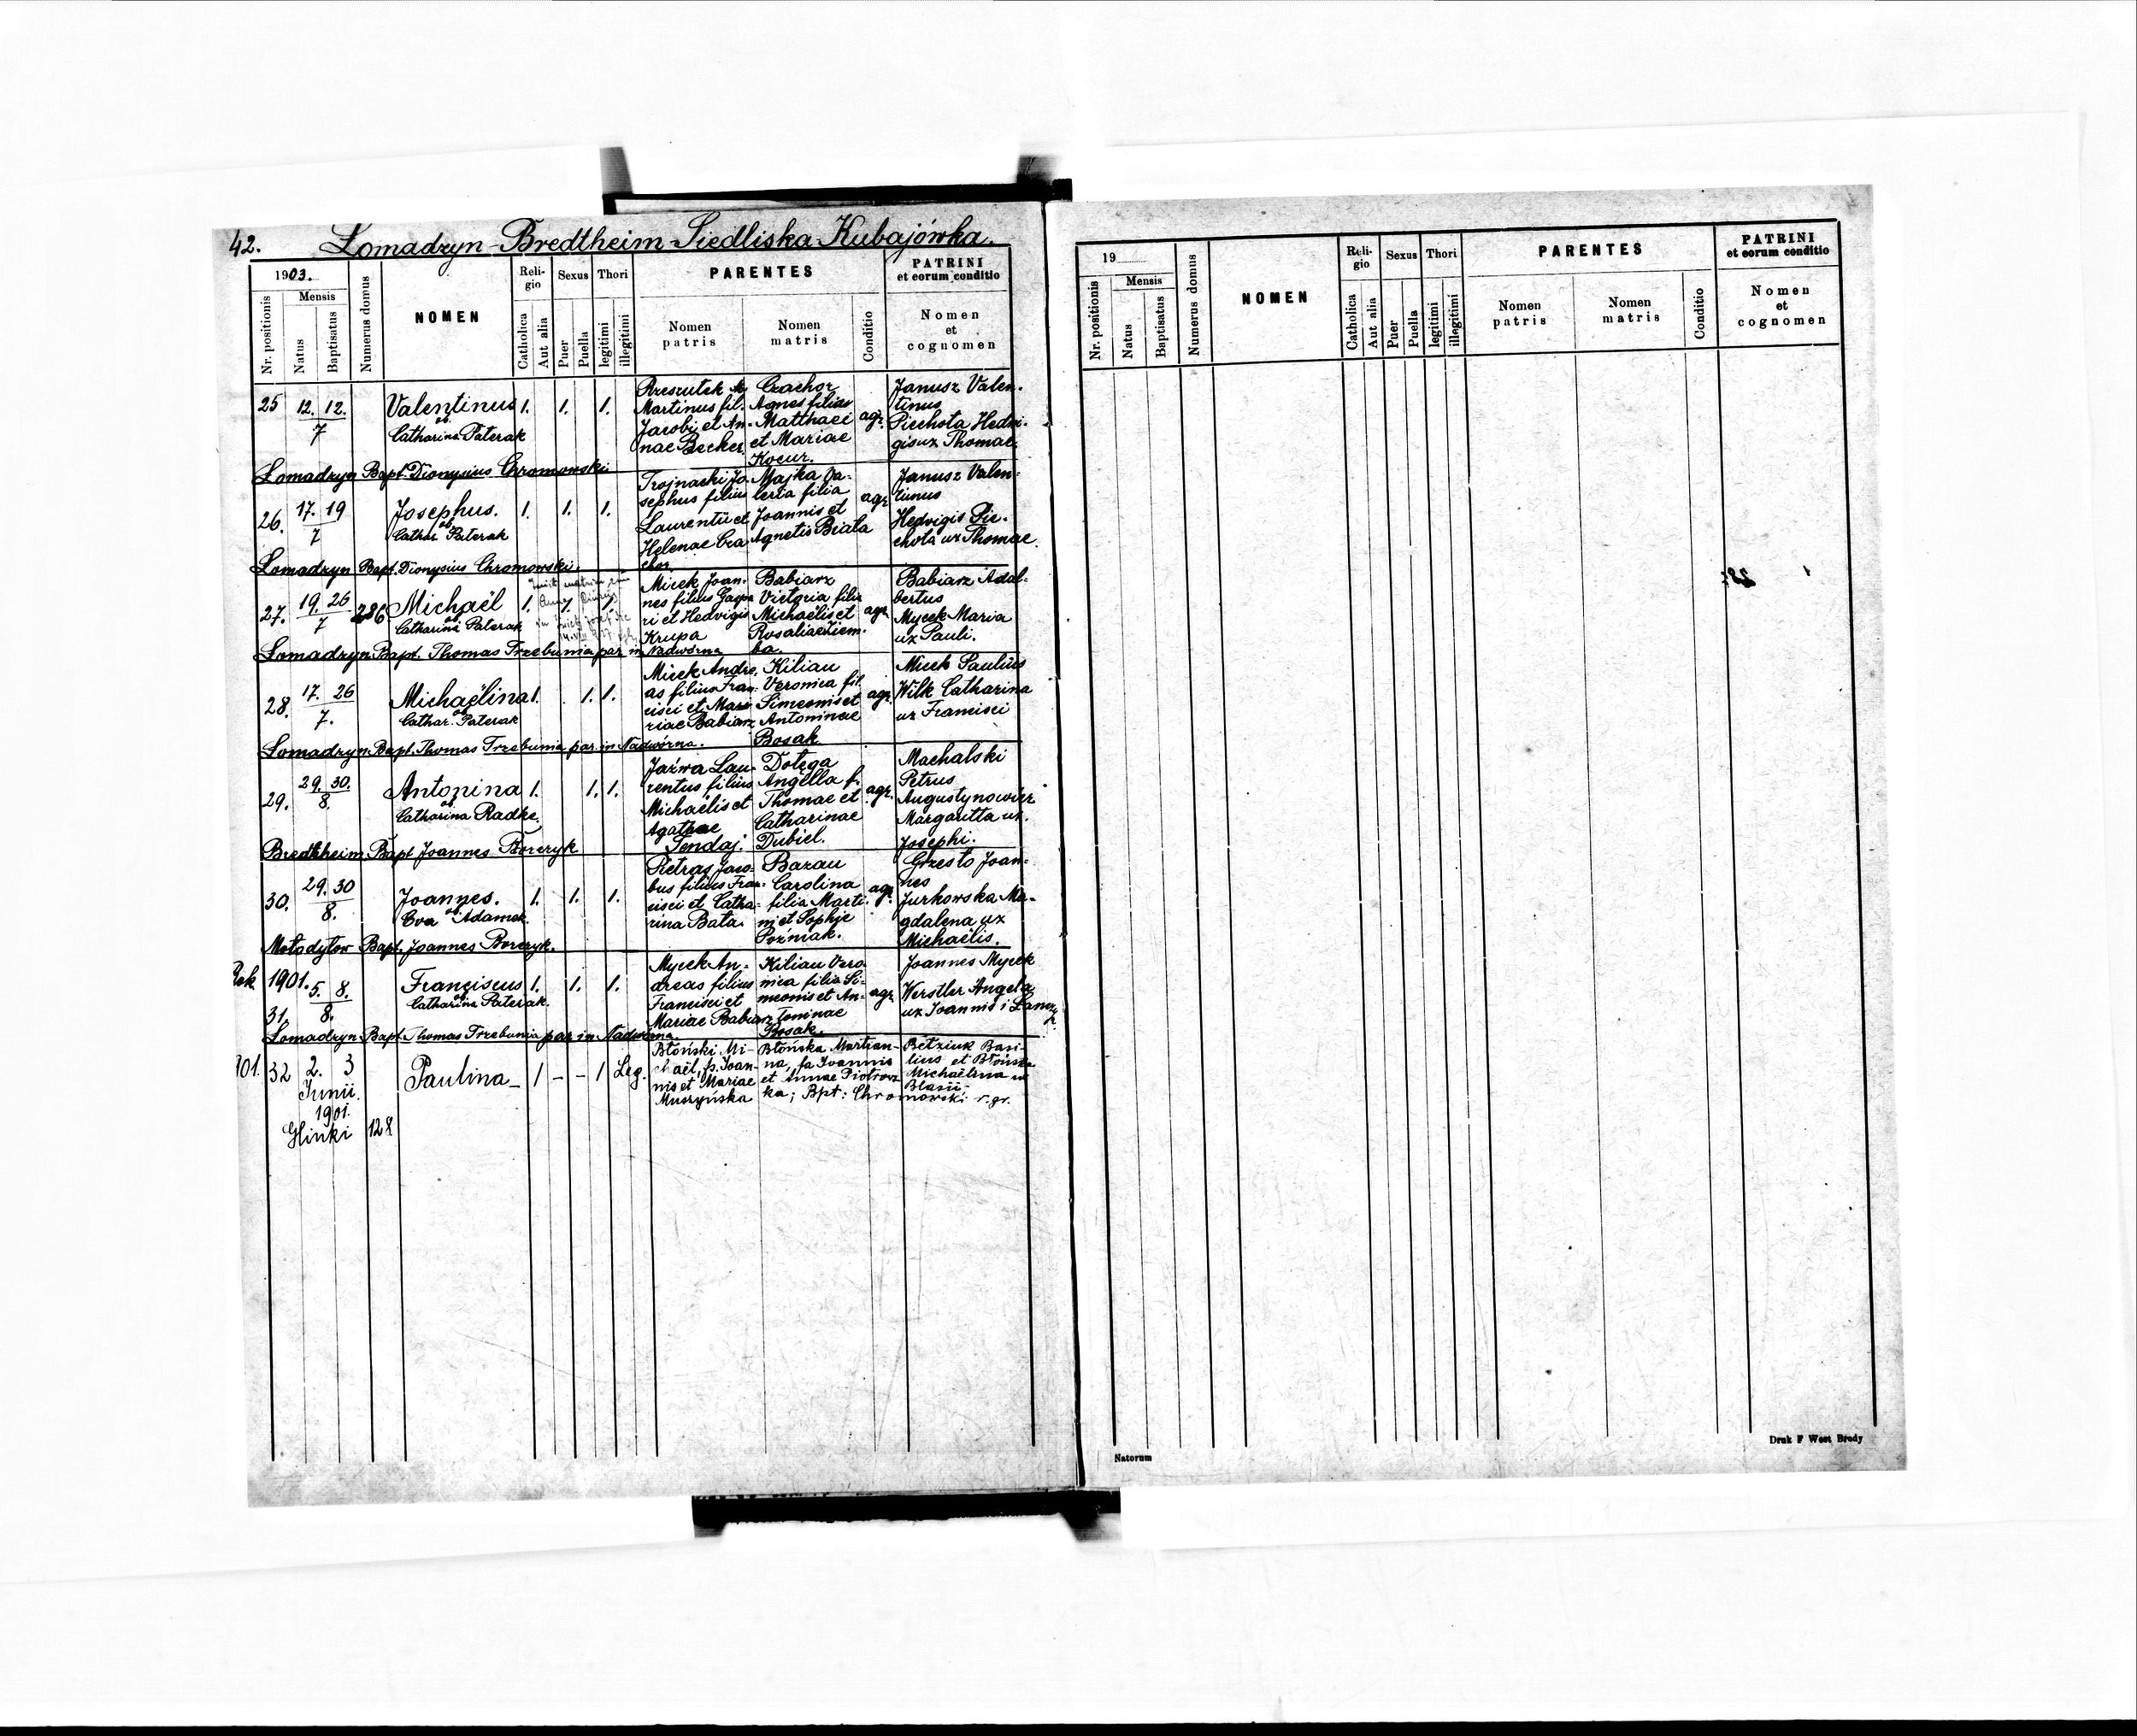 42. Łomadzyn-Bredtheim-Siedliska Kubajówka.
1903.
Nr. positionis
Mensis
Natus
Baptisatus
Numerus domus
NOMEN
Reli-
gio
Catholica
Aut alia
Sexus
Puer
Puella
Thori
legitimi
illegitimi
PARENTES
Nomen
patris
Nomen
matris
Conditio
PATRINI
et eorum conditio
Nomen
et
cognomen
25 12. 12.
7
Valentinus 1. 1. 1.
ob.
Catharina Paterak
Rzeszutek
Martinus fil.
Jacobi et An-
nae Becker
Czachor
Agnes filia
Matthaei
et Mariae
Kocur.
agr.
Janusz Valen-
tinus
Piechota Hedvi-
gis ux Thomae.
Łomadzyn Bapt. Dionysius Chromowski
26. 17. 19
7
Josephus. 1. 1. 1.
ob.
Cathar. Paterak
Trojnacki Jo-
sephus filius
Laurentii et
Helenae Cza
chor
Majka Va-
leria filia
Joannis et
Agnetis Biała
agr
Janusz Valen-
tinus
Hedvigis Pie-
chota ux Thomae.
Łomadzyn Bapt. Dionysius Chromowski.
27. 19. 26
7
286
Michaël 1. 1. 1.
ob.
Catharina Paterak
Micek Joan-
nes filius Gaspa
ri et Hedvigis
Krupa
Babiarz
Victoria filia
Michaëlis et
Rosaliae Ziem-
ba.
agr
Babiarz Adal-
bertus
Mycek Maria
ux Pauli.
Łomadzyn Bapt. Thomas Trzebunia par in Nadwórna
28. 17. 26
7.
Michaëlina 1. 1. 1.
ob
Cathar. Paterak
Micek Andre-
as filius Fran-
cisci et Mar-
riae Babiarz
Kilian
Veronica fil.
Simeonis et
Antoninae
Bosak
agr.
Micek Paulus
Wilk Catharina
ux Francisci
Łomadzyn Bapt. Thomas Trzebunia par. in Nadwórna.
29. 29. 30.
8.
Antonina 1. 1. 1.
ob.
Catharina Radke.
Jaźwa Lau-
rentus filius
Michaëlis et
Agathae
Tendaj.
Dołęga
Angella f.
Thomae et
Catharinae
Dubiel.
agr.
Machalski
Petrus
Augustynowicz
Margaritta ux.
Josephi.
Bredtheim Bapt Joannes Borczyk
30. 29. 30
8.
Joannes. 1. 1. 1.
ob
Eva Adamek.
Pietras Jaco-
bus filius Fran-
cisci et Catha-
rina Bata.
Bazau
Carolina
filia Marti-
ni et Sophie
Poźniak.
agr.
Grzesło Joan-
nes
Jurkowska Ma-
gdalena ux
Michaëlis.
Mołodyłow Bapt. Joannes Borczyk.
Rok 1901. 5. 8.
8.
31.
Franciscus 1. 1. 1.
ob
Catharina Paterak.
Mycek An-
dreas filius
Francisci et
Mariae Babiarz
Kilian Vero
nica filia Si-
meonis et An-
toninae
Bosak.
agr
Joannes Mycek
Werstler Angela
ux Joannis
Łomadzyn Bapt. Thomas Trzebunia par in Nadwórna.
901. 32 2. 3
Junii
1901.
Glinki 128
Paulina 1 - - 1 Leg.
Błoński Mi-
chaël, fs. Joan-
nis et Mariae
Muszyńska
Błońska Martian-
na, fa Joannis
et Annae Piotrow
ka; Bpt: Chromowski r. gr.
Betziuk Basi-
lius et Błońska
Michaëlina ux
Blasii
19
Nr. positionis
Mensis
Natus
Baptisatus
Numerus domus
NOMEN
Reli-
gio
Catholica
Aut alia
Sexus
Puer
Puella
Thori
legitimi
illegitimi
PARENTES
Nomen
patris
Nomen
matris
Conditio
PATRINI
et eorum conditio
Nomen
et
cognomen
Natorum
Druk F West Brody